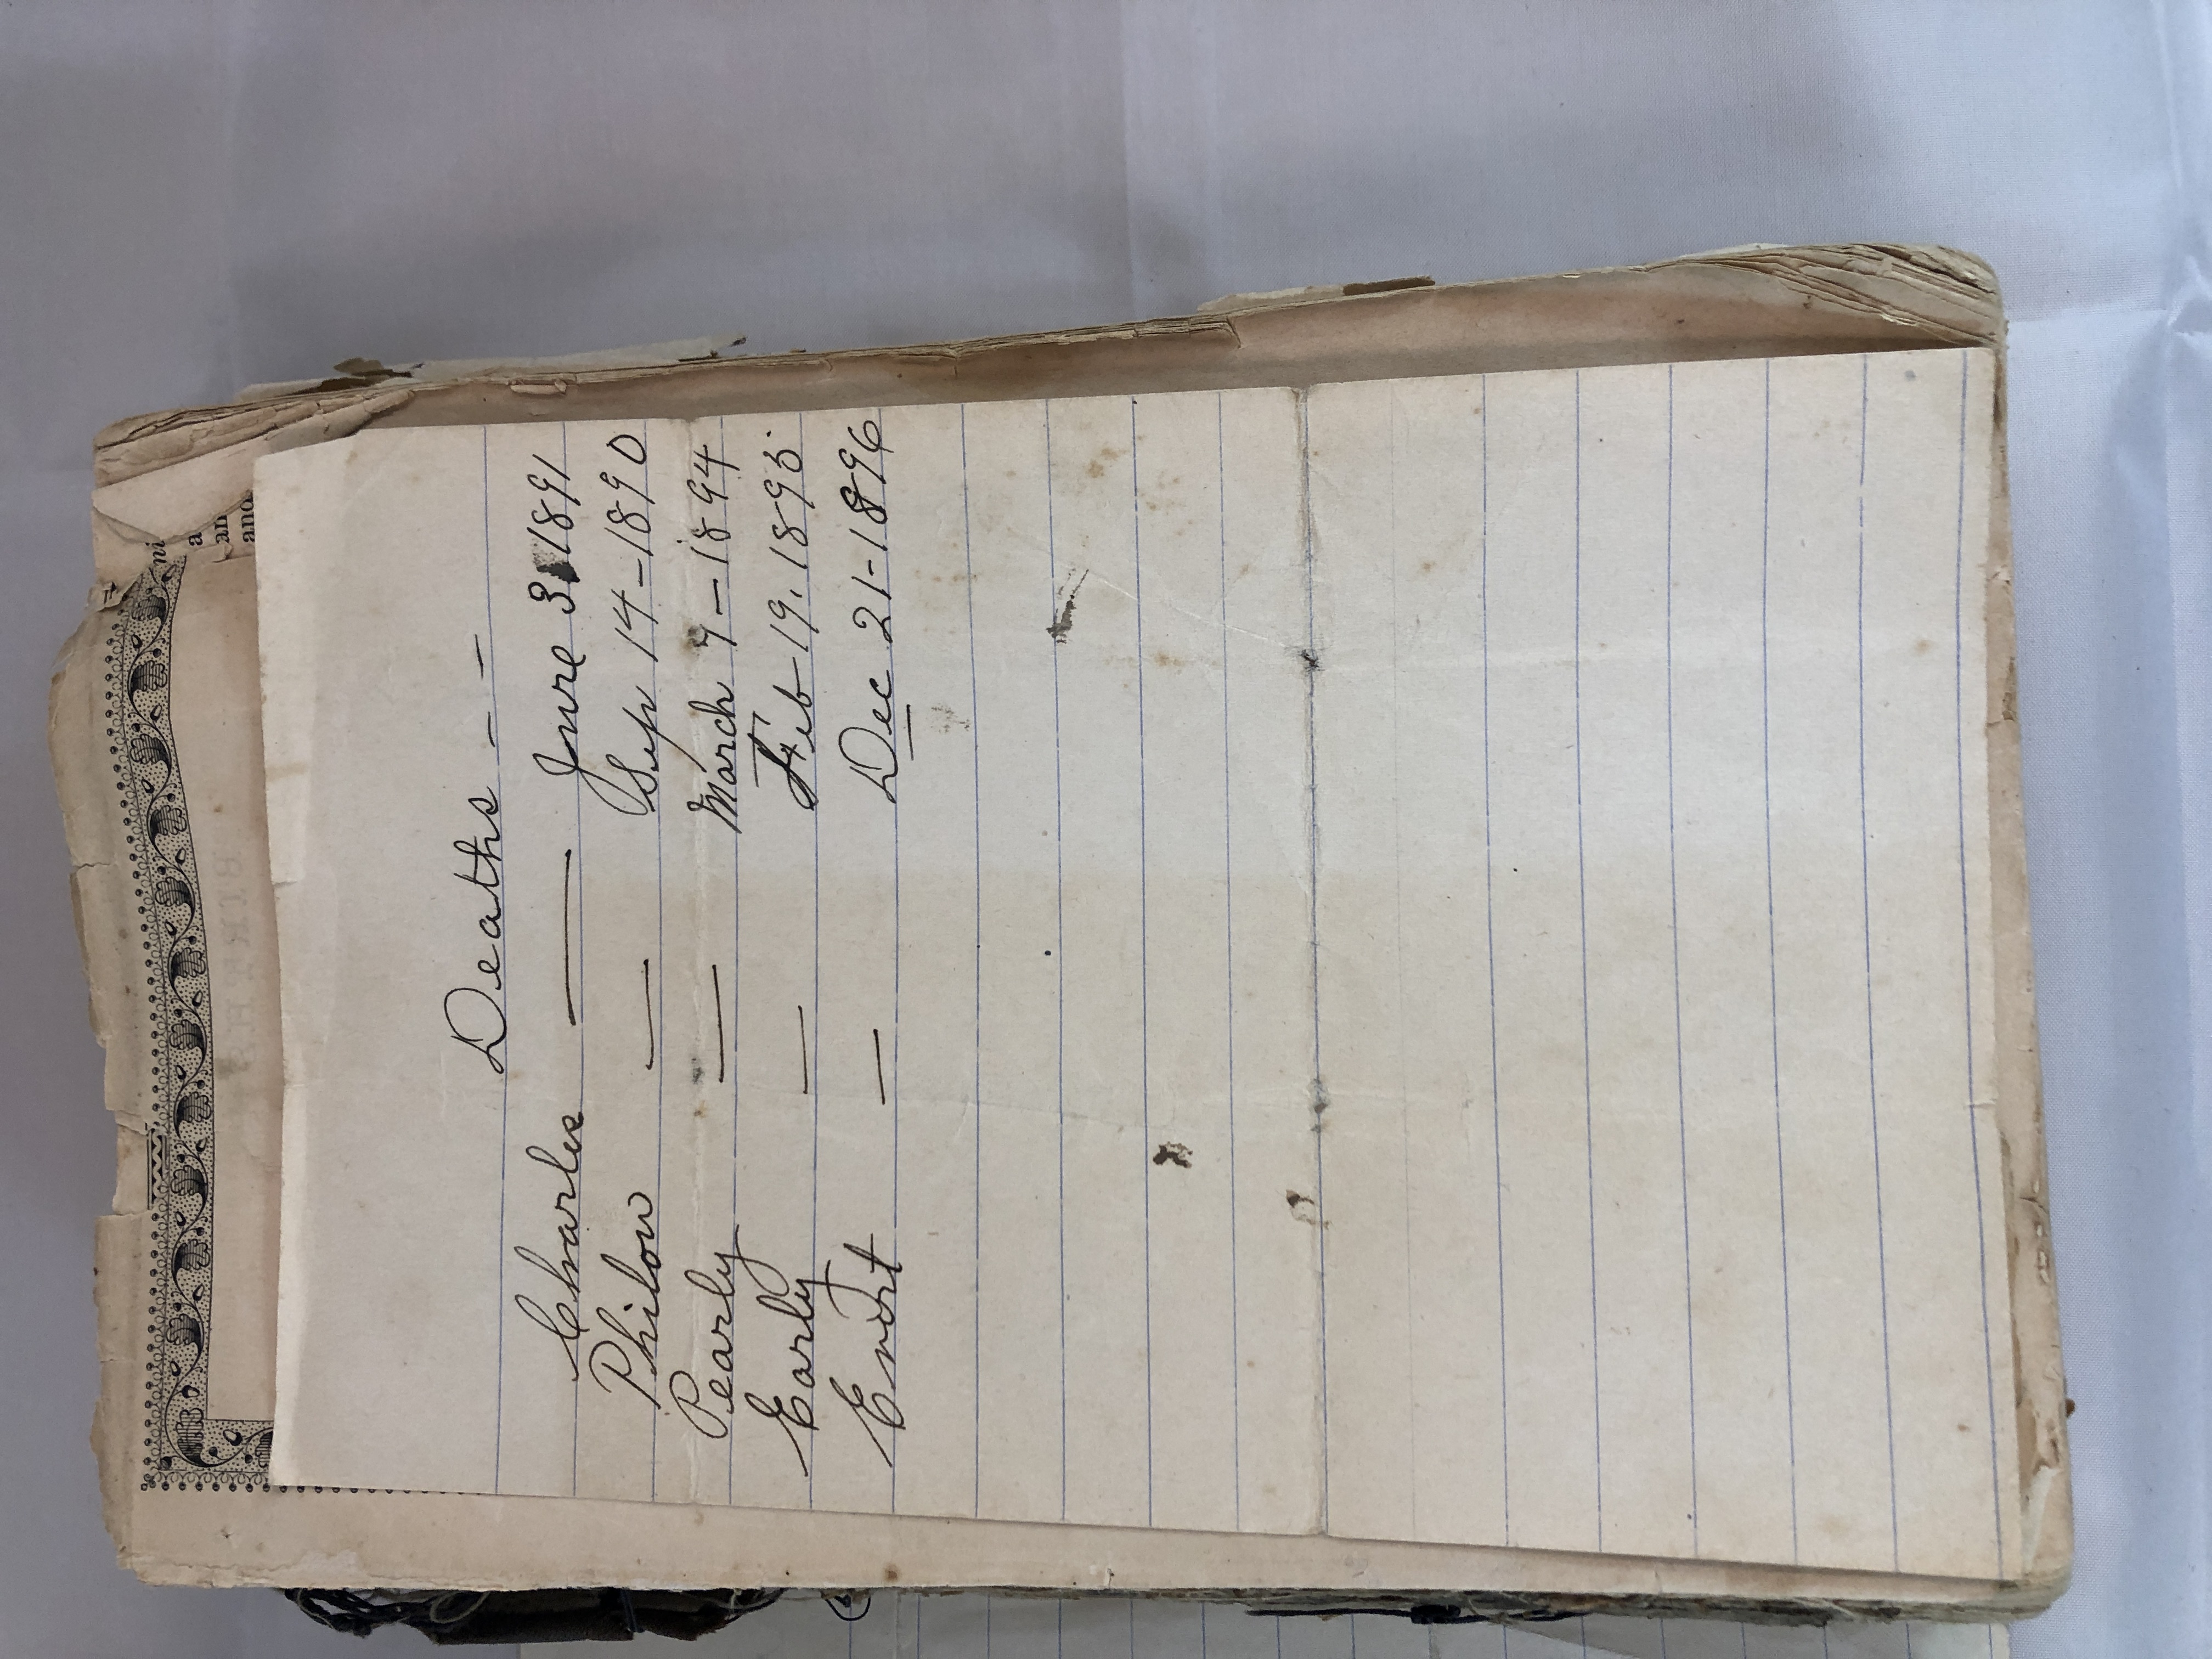 Deaths - - -
Charles — June 3 1891
Philow — Sep 14-1890
Pearly — March 7-1894
Early — Feb-19, 1895
— Dec 21-1896
a
an
and